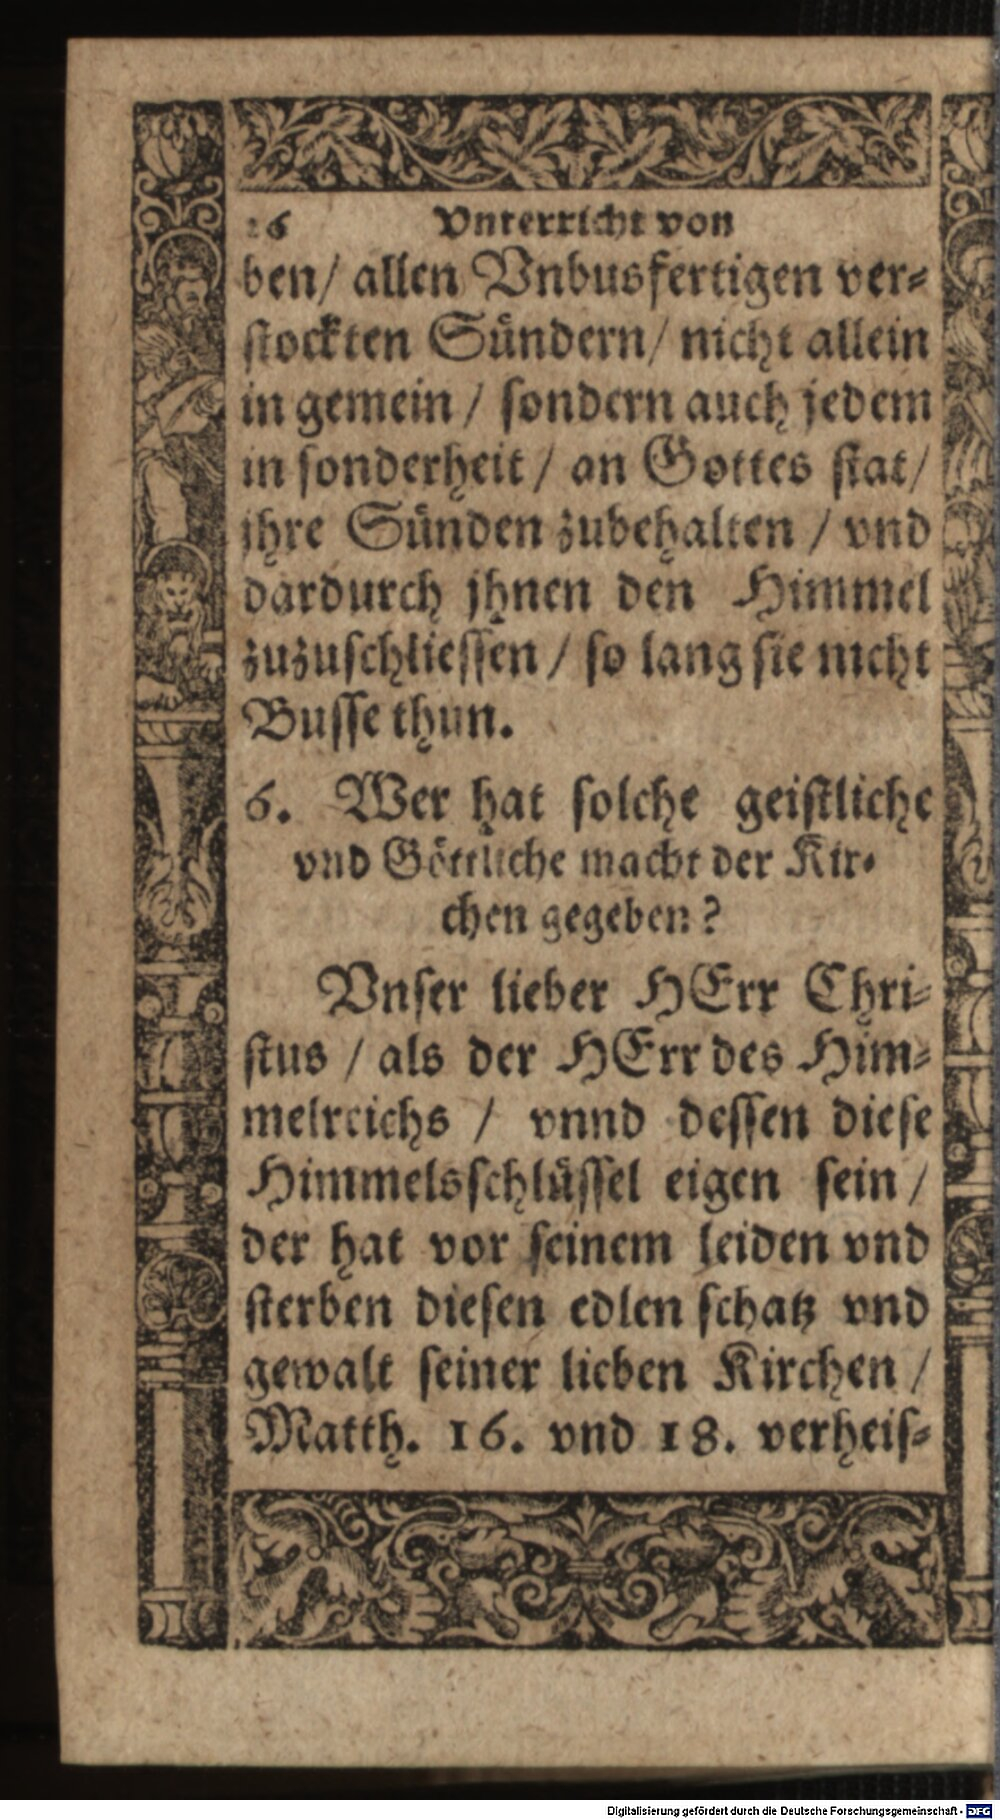 26 Vnterricht von
ben/ allen Vnbusfertigen ver⸗
stockten Sündern/ nicht allein
in gemein / sondern auch jedem
in sonderheit / an Gottes stat/
jhre Sünden zubehalten / vnd
dardurch jhnen den Himmel
zuzuschliessen / so lang sie nicht
Busse thun.
6. Wer hat solche geistliche
vnd Göttliche macht der Kir⸗
chen gegeben?
Vnser lieber HErr Chri⸗
stus / als der HErr des Him⸗
melreichs / vnnd dessen diese
Himmelsschlüssel eigen sein /
der hat vor seinem leiden vnd
sterben diesen edlen schatz vnd
gewalt seiner lieben Kirchen /
Matth. 16. vnd 18. verheis⸗
Digitalisierung gefördert durch die Deutsche Forschungsgemeinschaft - DFG